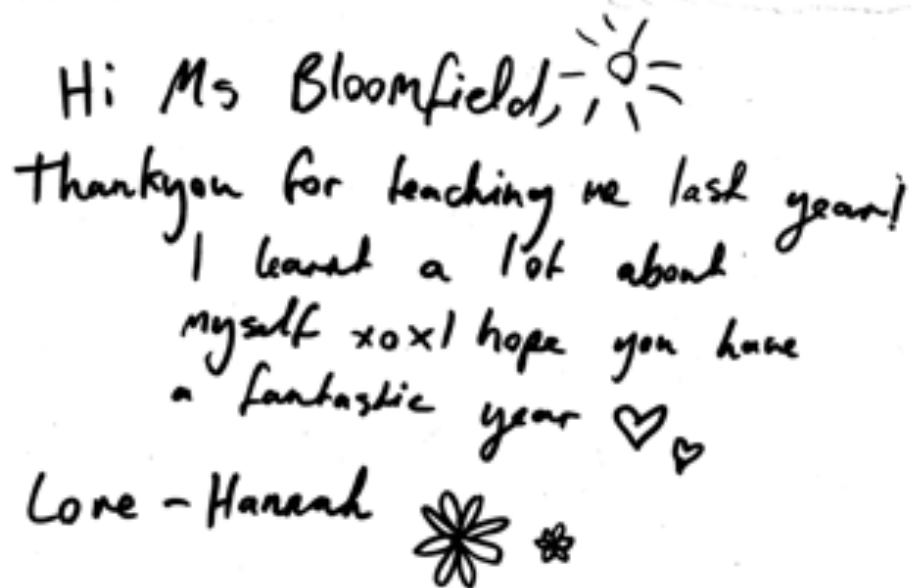 Hi Ms Bloomfield,
Thankyou for teaching me last year!
I learnt a lot about
myself xox I hope you have
a fantastic year
Love - Hannah